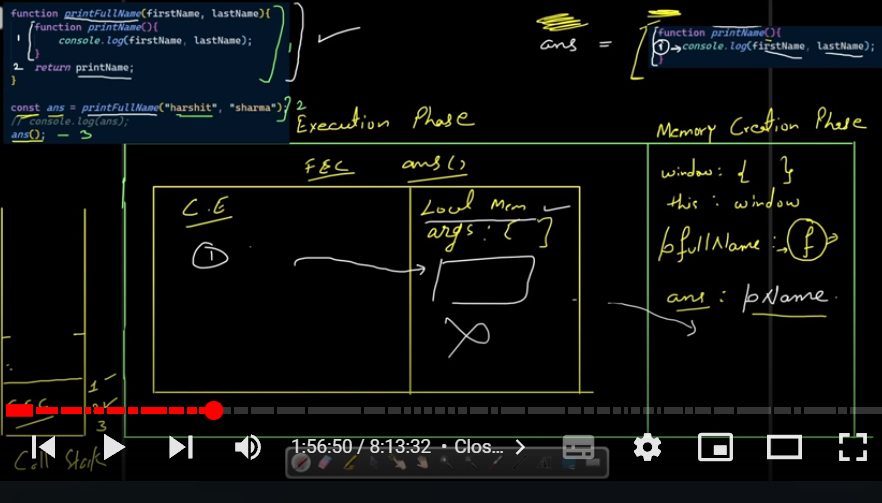 function printFullName(firstName, lastName){
1 function printName(){
console.log(firstName, lastName);
}
2 return printName;
}
1
const ans = printFullName("harshit", "sharma"); 2
// console.log(ans);
ans(); - 3
ans =
function printName(){
1 console.log(firstName, lastName);
}
Execution Phase
Memory Creation Phase
FEC ans()
C.E
Local Mem
args: [ ]
1
window: { }
this: window
pfullName: f
ans: pName
1
2
3
Call Stack
1:56:50 / 8:13:32 • Clos...